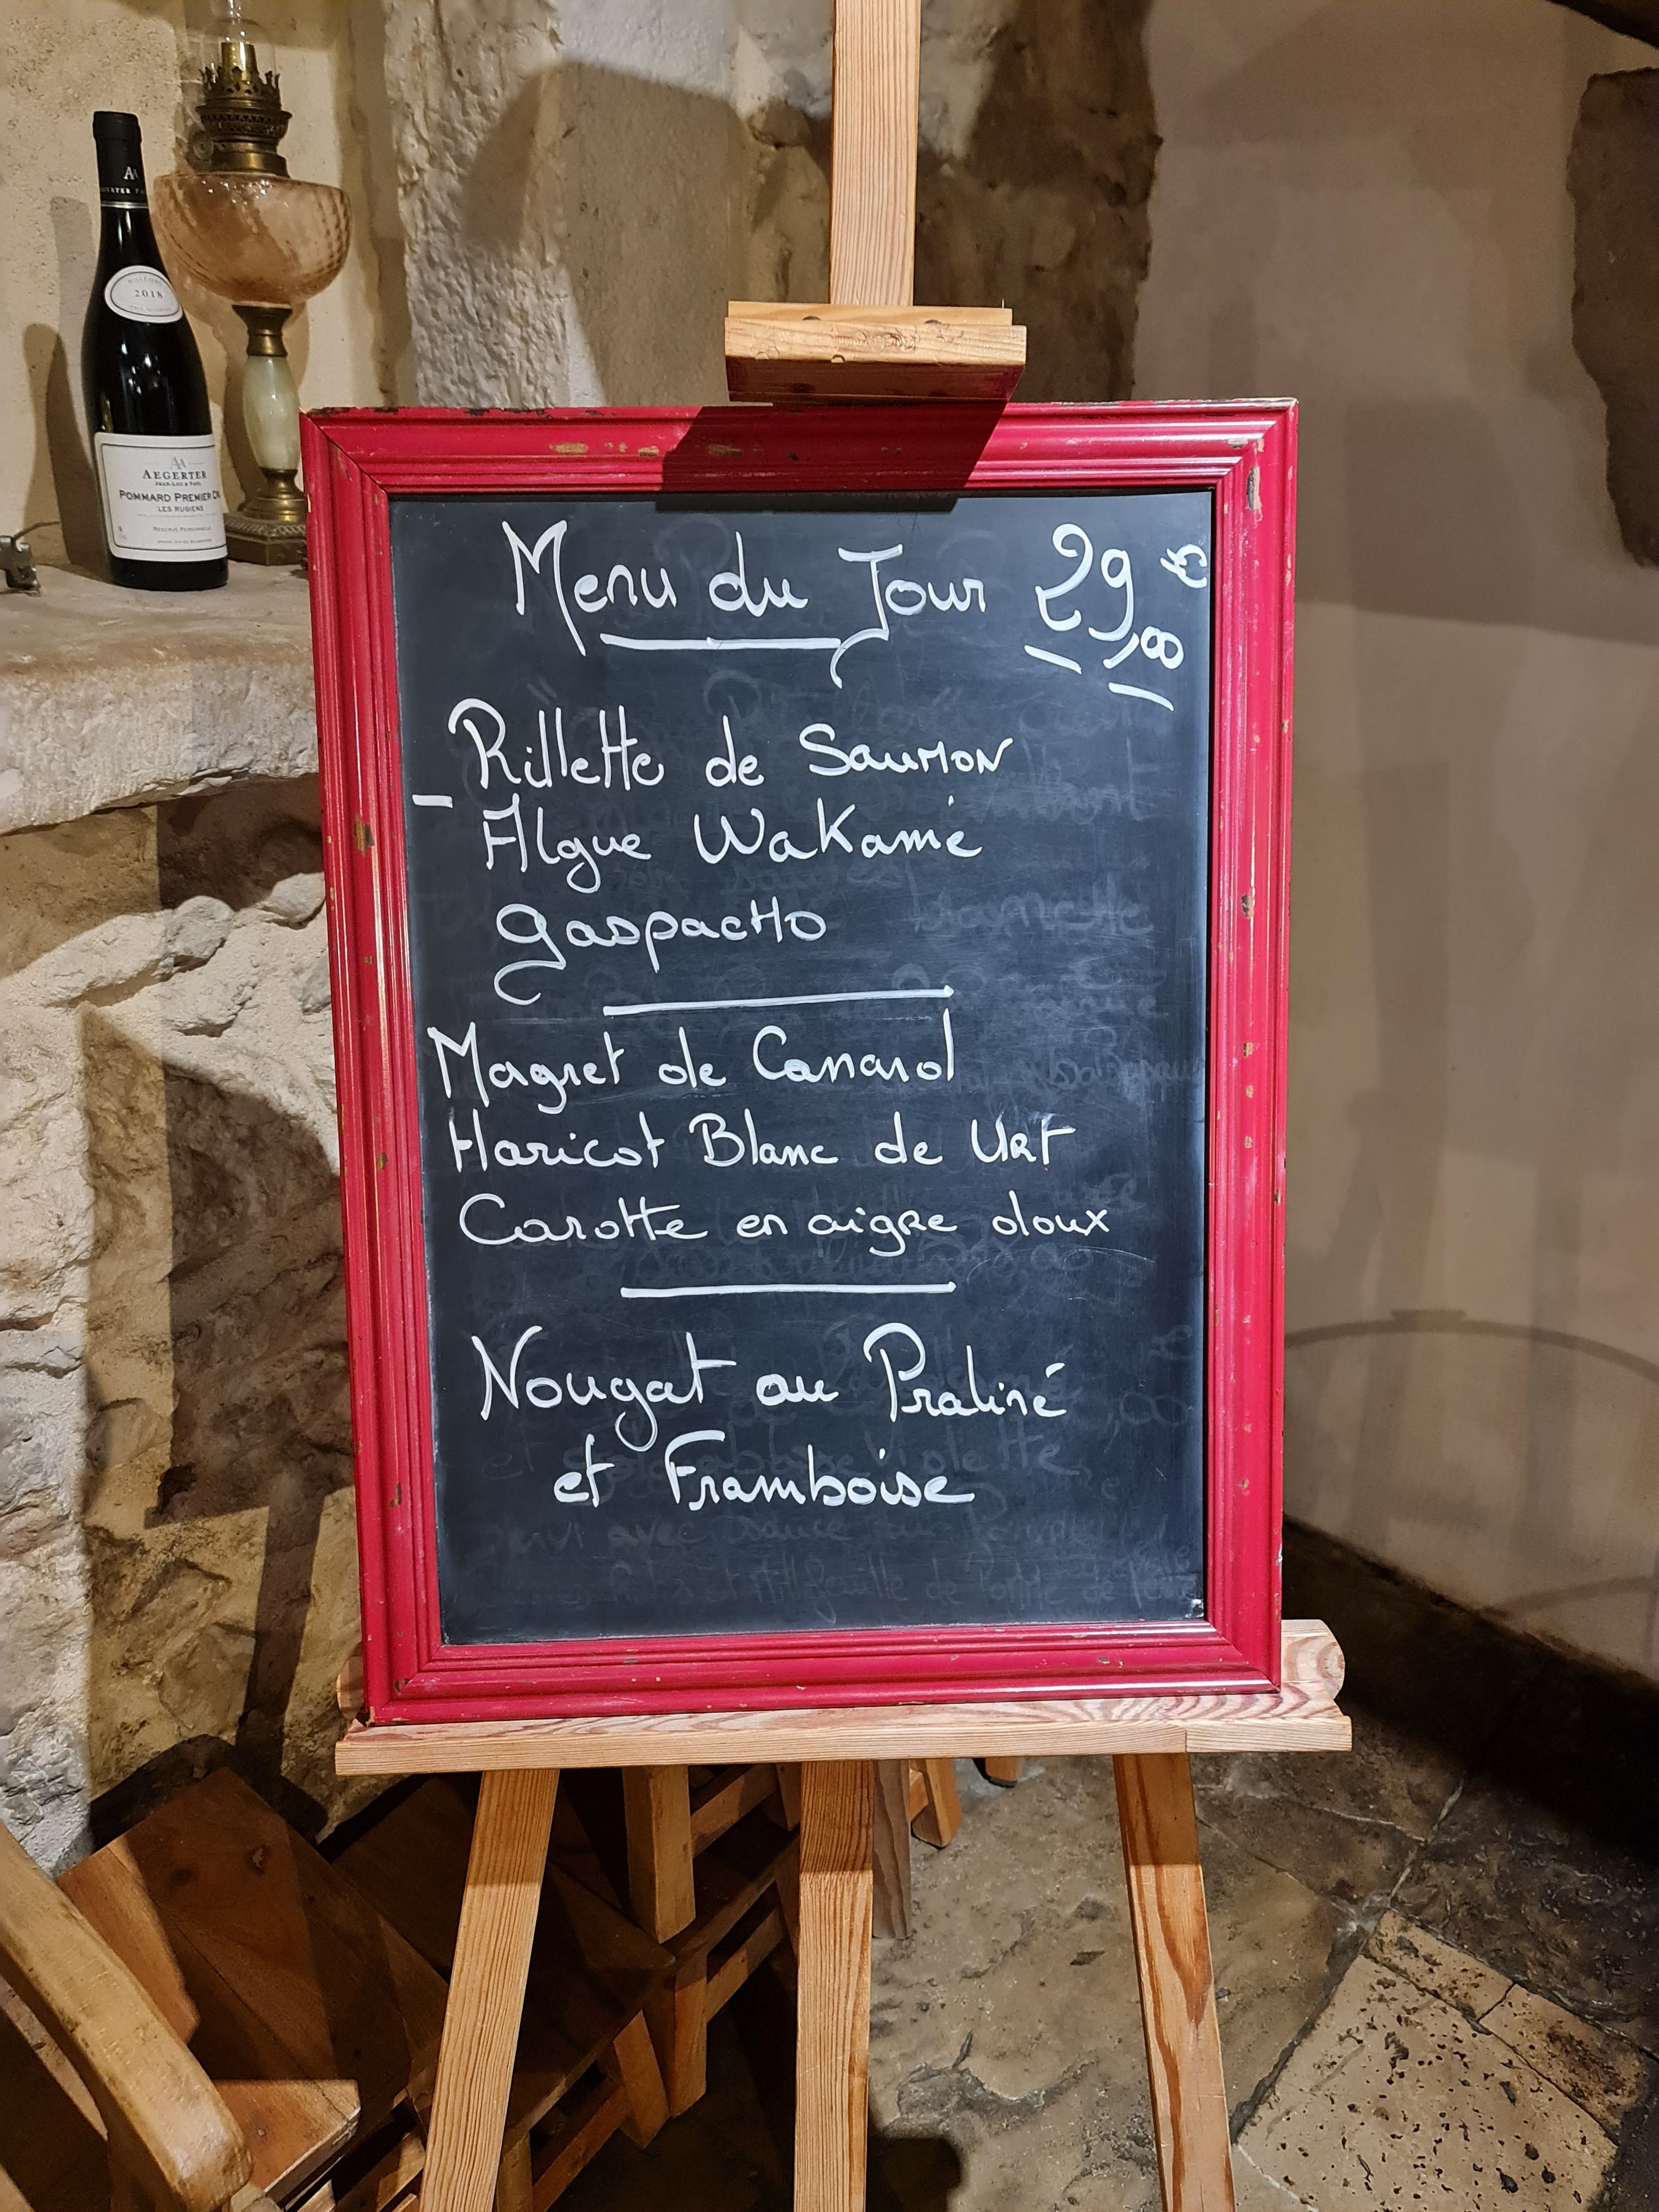 AEGERTER
JEAN-LUC & PAUL
POMMARD PREMIER
LES RUGIENS
RÉSERVE PERSONNELLE
2018
Menu du Jour 29,00 €
Rillette de Saumon
Algue Wakamé
gaspacho
Magret de Canard
Haricot Blanc de Urt
Carotte en aigre doux
Nougat au Praliné
et Framboise